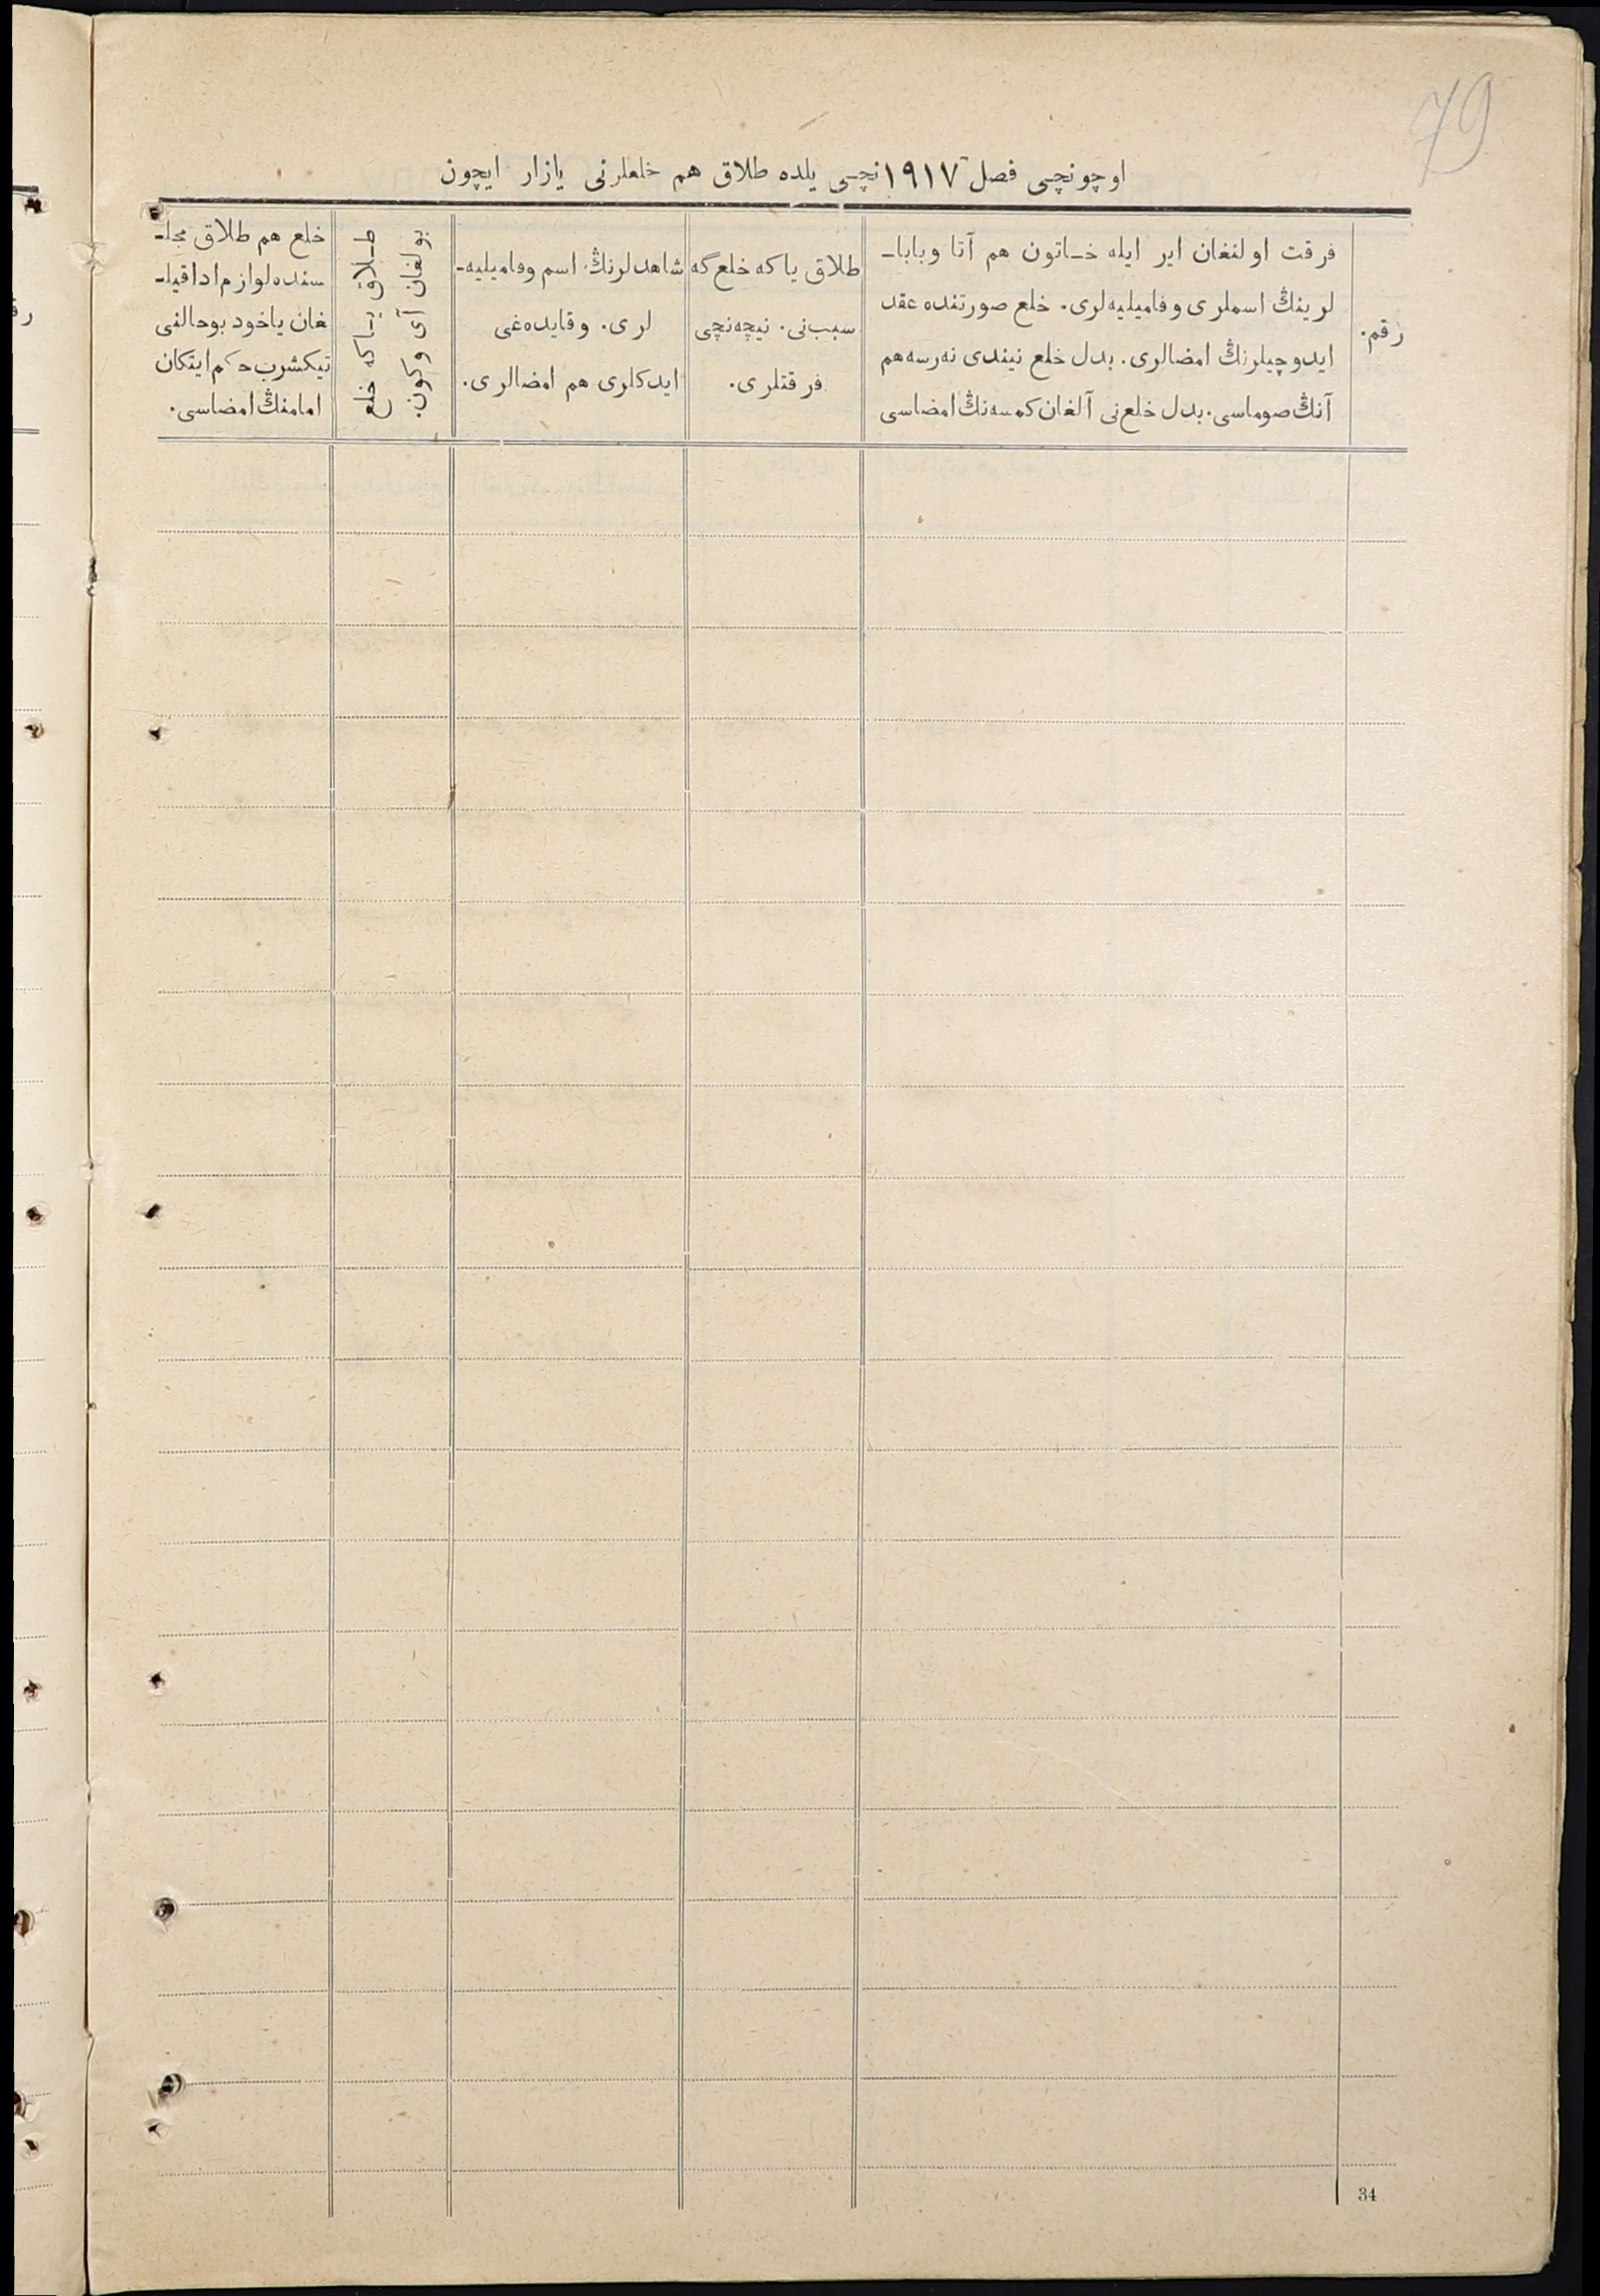 79
اوچونچی فصل ١٩١٧ نچی یلده طلاق هم خلعلرنی یازار ایچون
رقم.
فرقت اولنغان ایر ایله خاتون هم آتا وبابا-
لرینڭ اسملری وفامیلیه‌لری. خلع صورتنده عقد
ایدوچیلرنڭ امضالری. بدل خلع نیندی نه‌رسه هم
آنڭ صوماسی. بدل خلع‌نی آلغان کمسه‌نڭ امضاسی
طلاق یاکه خلع گه
سبب‌نی. نیچه‌نچی
فرقتلری.
شاهدلرنڭ اسم وفامیلیه-
لری. وقایده‌غی
ایدکلری هم امضالری.
طلاق یاکه خلع
بولغان آی وکون.
خلع هم طلاق مجلـ
سنده لوازم ادا قیلـ
غان یاخود بوحالنی
تیکشرب حکم ایتکان
امامنڭ امضاسی.
34